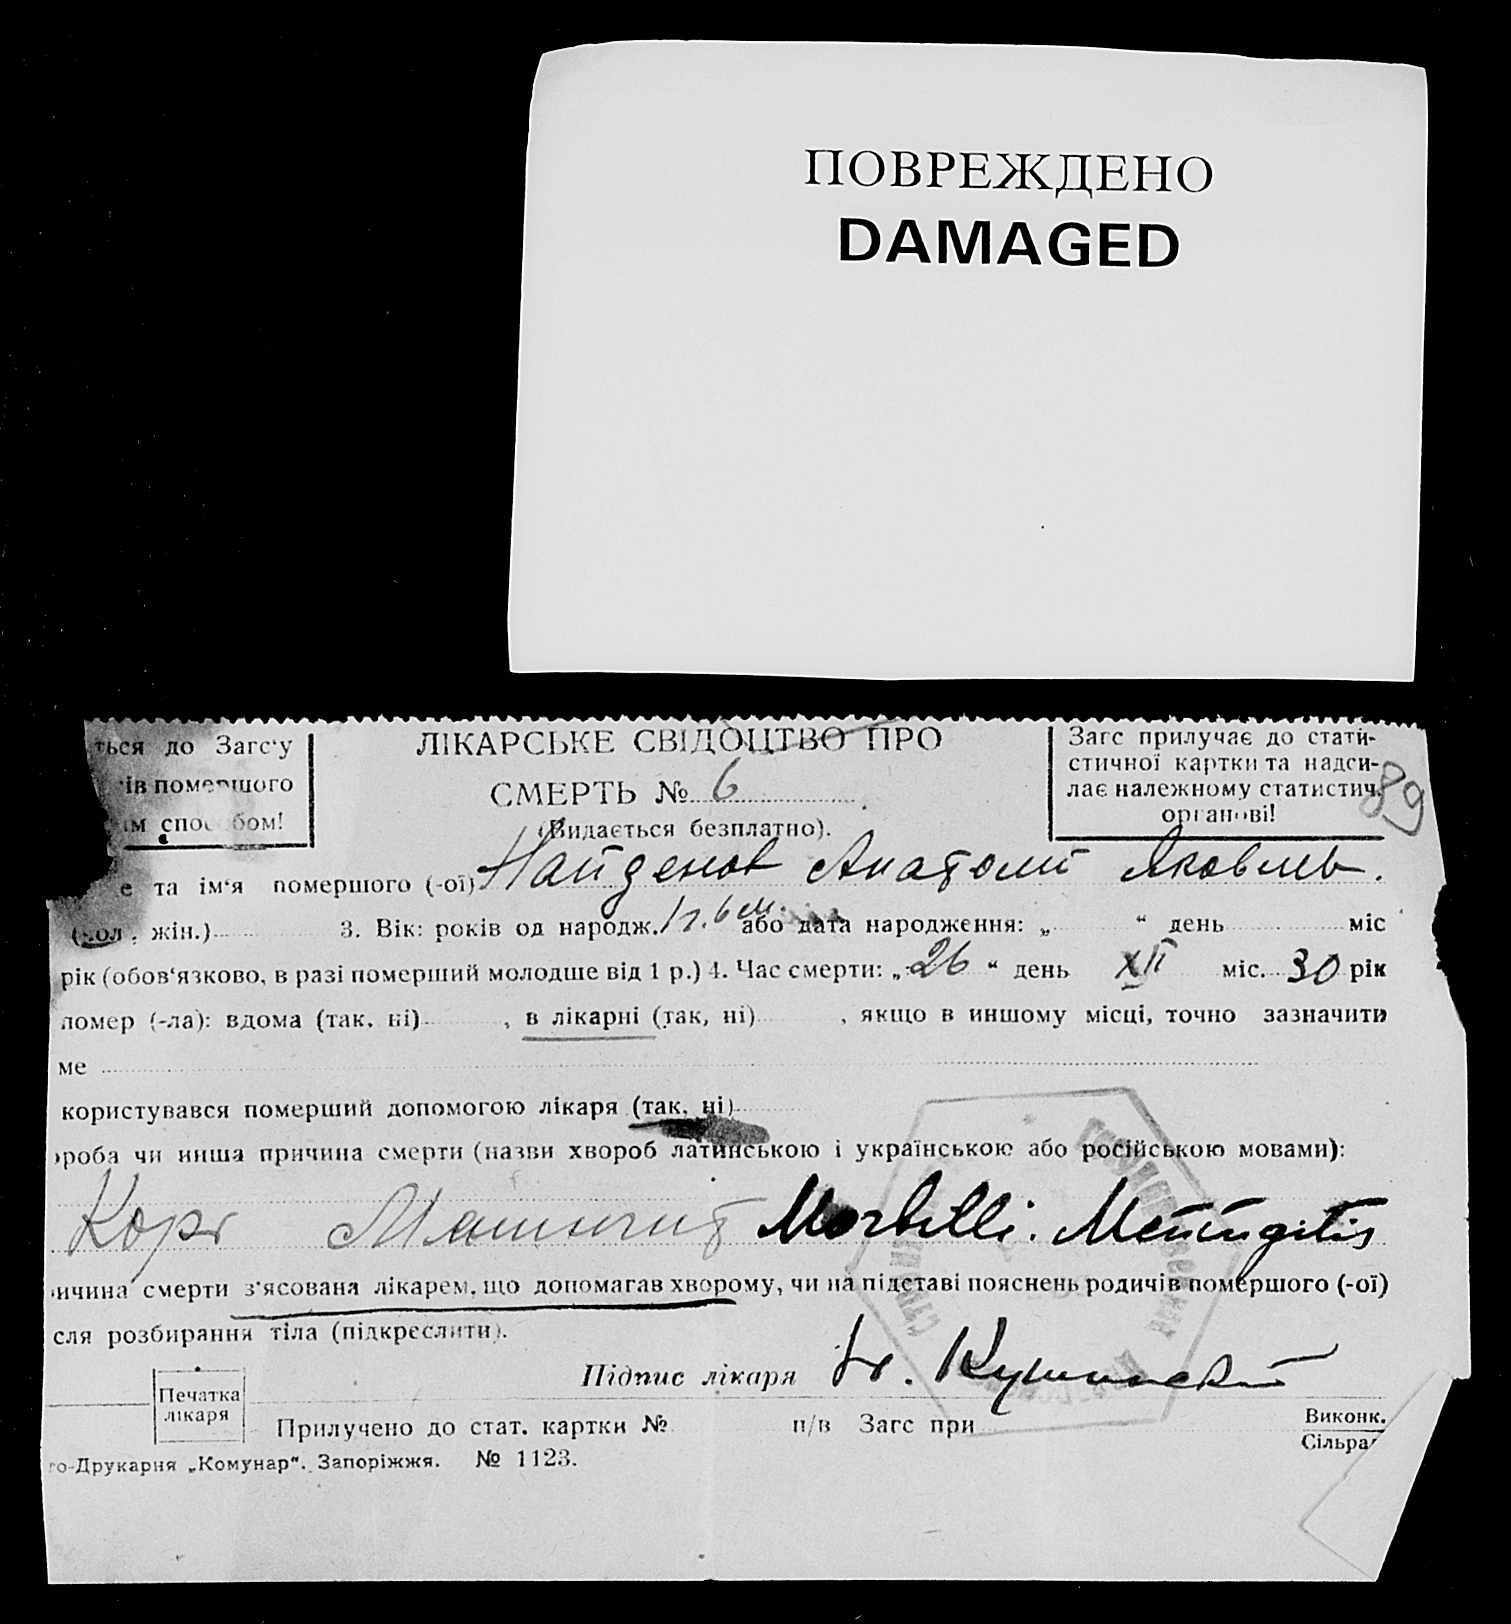 ПОВРЕЖДЕНО
DAMAGED
ться до Загс'у
ів помершого
им способом!
ЛІКАРСЬКЕ СВІДОЦТВО ПРО
СМЕРТЬ № 6
(Видається безплатно).
Загс прилучає до стати-
стичної картки та надси-
лає належному статистич.
органові!
89
е та ім'я помершого (-ої) Найденов Анатолий Яковлев.
(чол., жін.) 3. Вік: років од народж. 1 г. 6 м. або дата народження: „ “ день міс
рік (обов'язково, в разі померший молодше від 1 р.) 4. Час смерти: „26“ день XII міс. 30 рік
помер (-ла): вдома (так, ні) , в лікарні (так, ні) , якщо в иншому місці, точно зазначити
ме
користувався померший допомогою лікаря (так, ні)
ороба чи инша причина смерти (назви хвороб латинською і українською або російською мовами):
Корь Менингит Morbilli. Meningitis
ичина смерти з'ясована лікарем, що допомагав хворому, чи на підставі пояснень родичів помершого (-ої)
сля розбирання тіла (підкреслити).
Підпис лікаря
Печатка
лікаря
Прилучено до стат. картки № п/в Загс при Виконк.
Сільрад
го-Друкарня „Комунар“. Запоріжжя. № 1123.